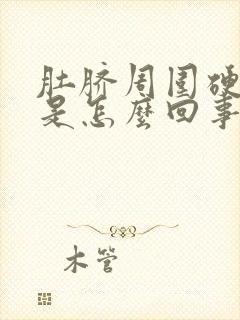 肚脐周围硬
是怎麼回事
木管